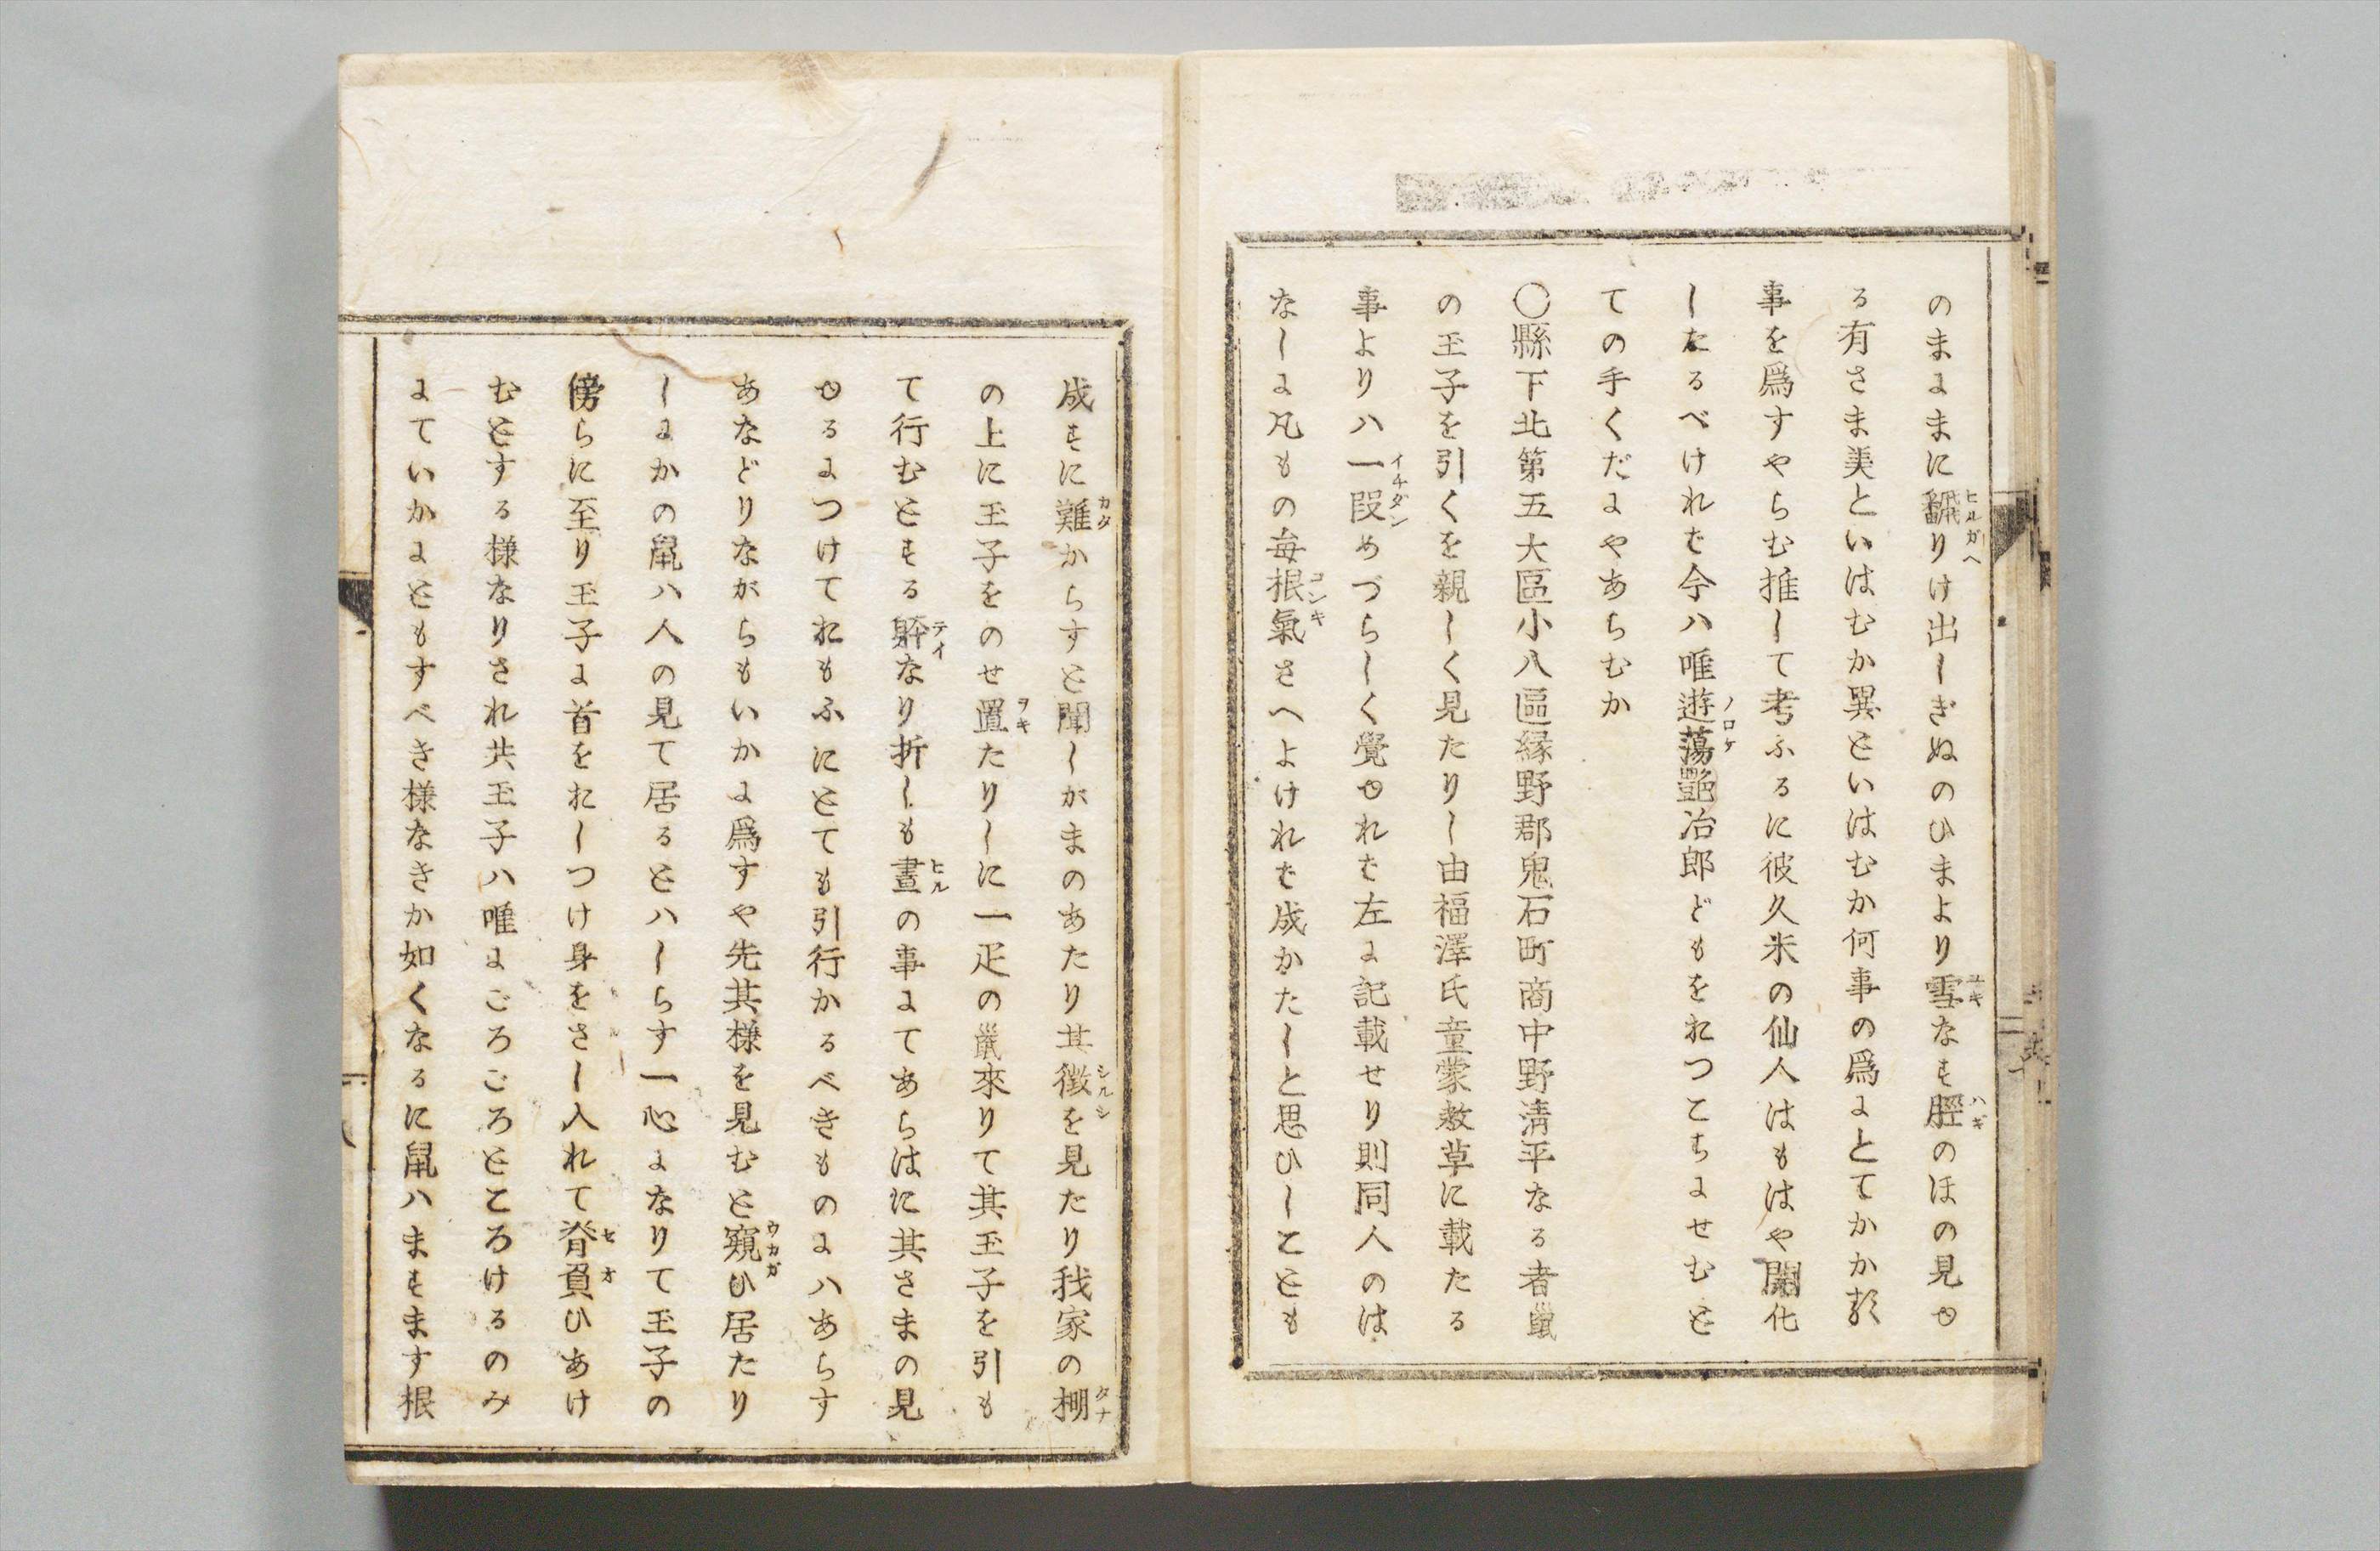 のまにまに飜りけ出しぎぬのひまより雪なす脛のほの見ゆ
る有さま美といはむか異といはむか何事の爲にとてかか類
事を爲すやらむ推して考ふるに彼久米の仙人はもはや開化
したるべけれど今ハ唯遊蕩艶冶郎どもをおつこちにせむと
ての手くだにやあらむか
〇縣下北第五大區小八區緑野郡鬼石町商中野清平なる者鼠
の玉子を引くを親しく見たりし由福澤氏童蒙教草に載たる
事よりハ一段めづらしく覺ゆれど左に記載せり則同人のは
なしに凡もの毎根氣さへよけれど成かたしと思ひしことも
成すに難からずと聞しがまのあたり其徴を見たり我家の棚
の上に玉子をのせ置たりしに一疋の鼠來りて其玉子を引も
て行むとする躰なり折しも晝の事にてあらはに其さまの見
ゆるにつけておもふにとても引行かるべきものにハあらす
あなどりながらもいかに爲すや先其様を見むと窺ひ居たり
しにかの鼠ハ人の見て居るとハしらす一心になりて玉子の
傍らに至り玉子に首をおしつけ身をさし入れて脊負ひあけ
むとする様なりされ共玉子ハ唯にごろごろところけるのみ
にていかにともすべき様なきか如くなるに鼠ハますます根